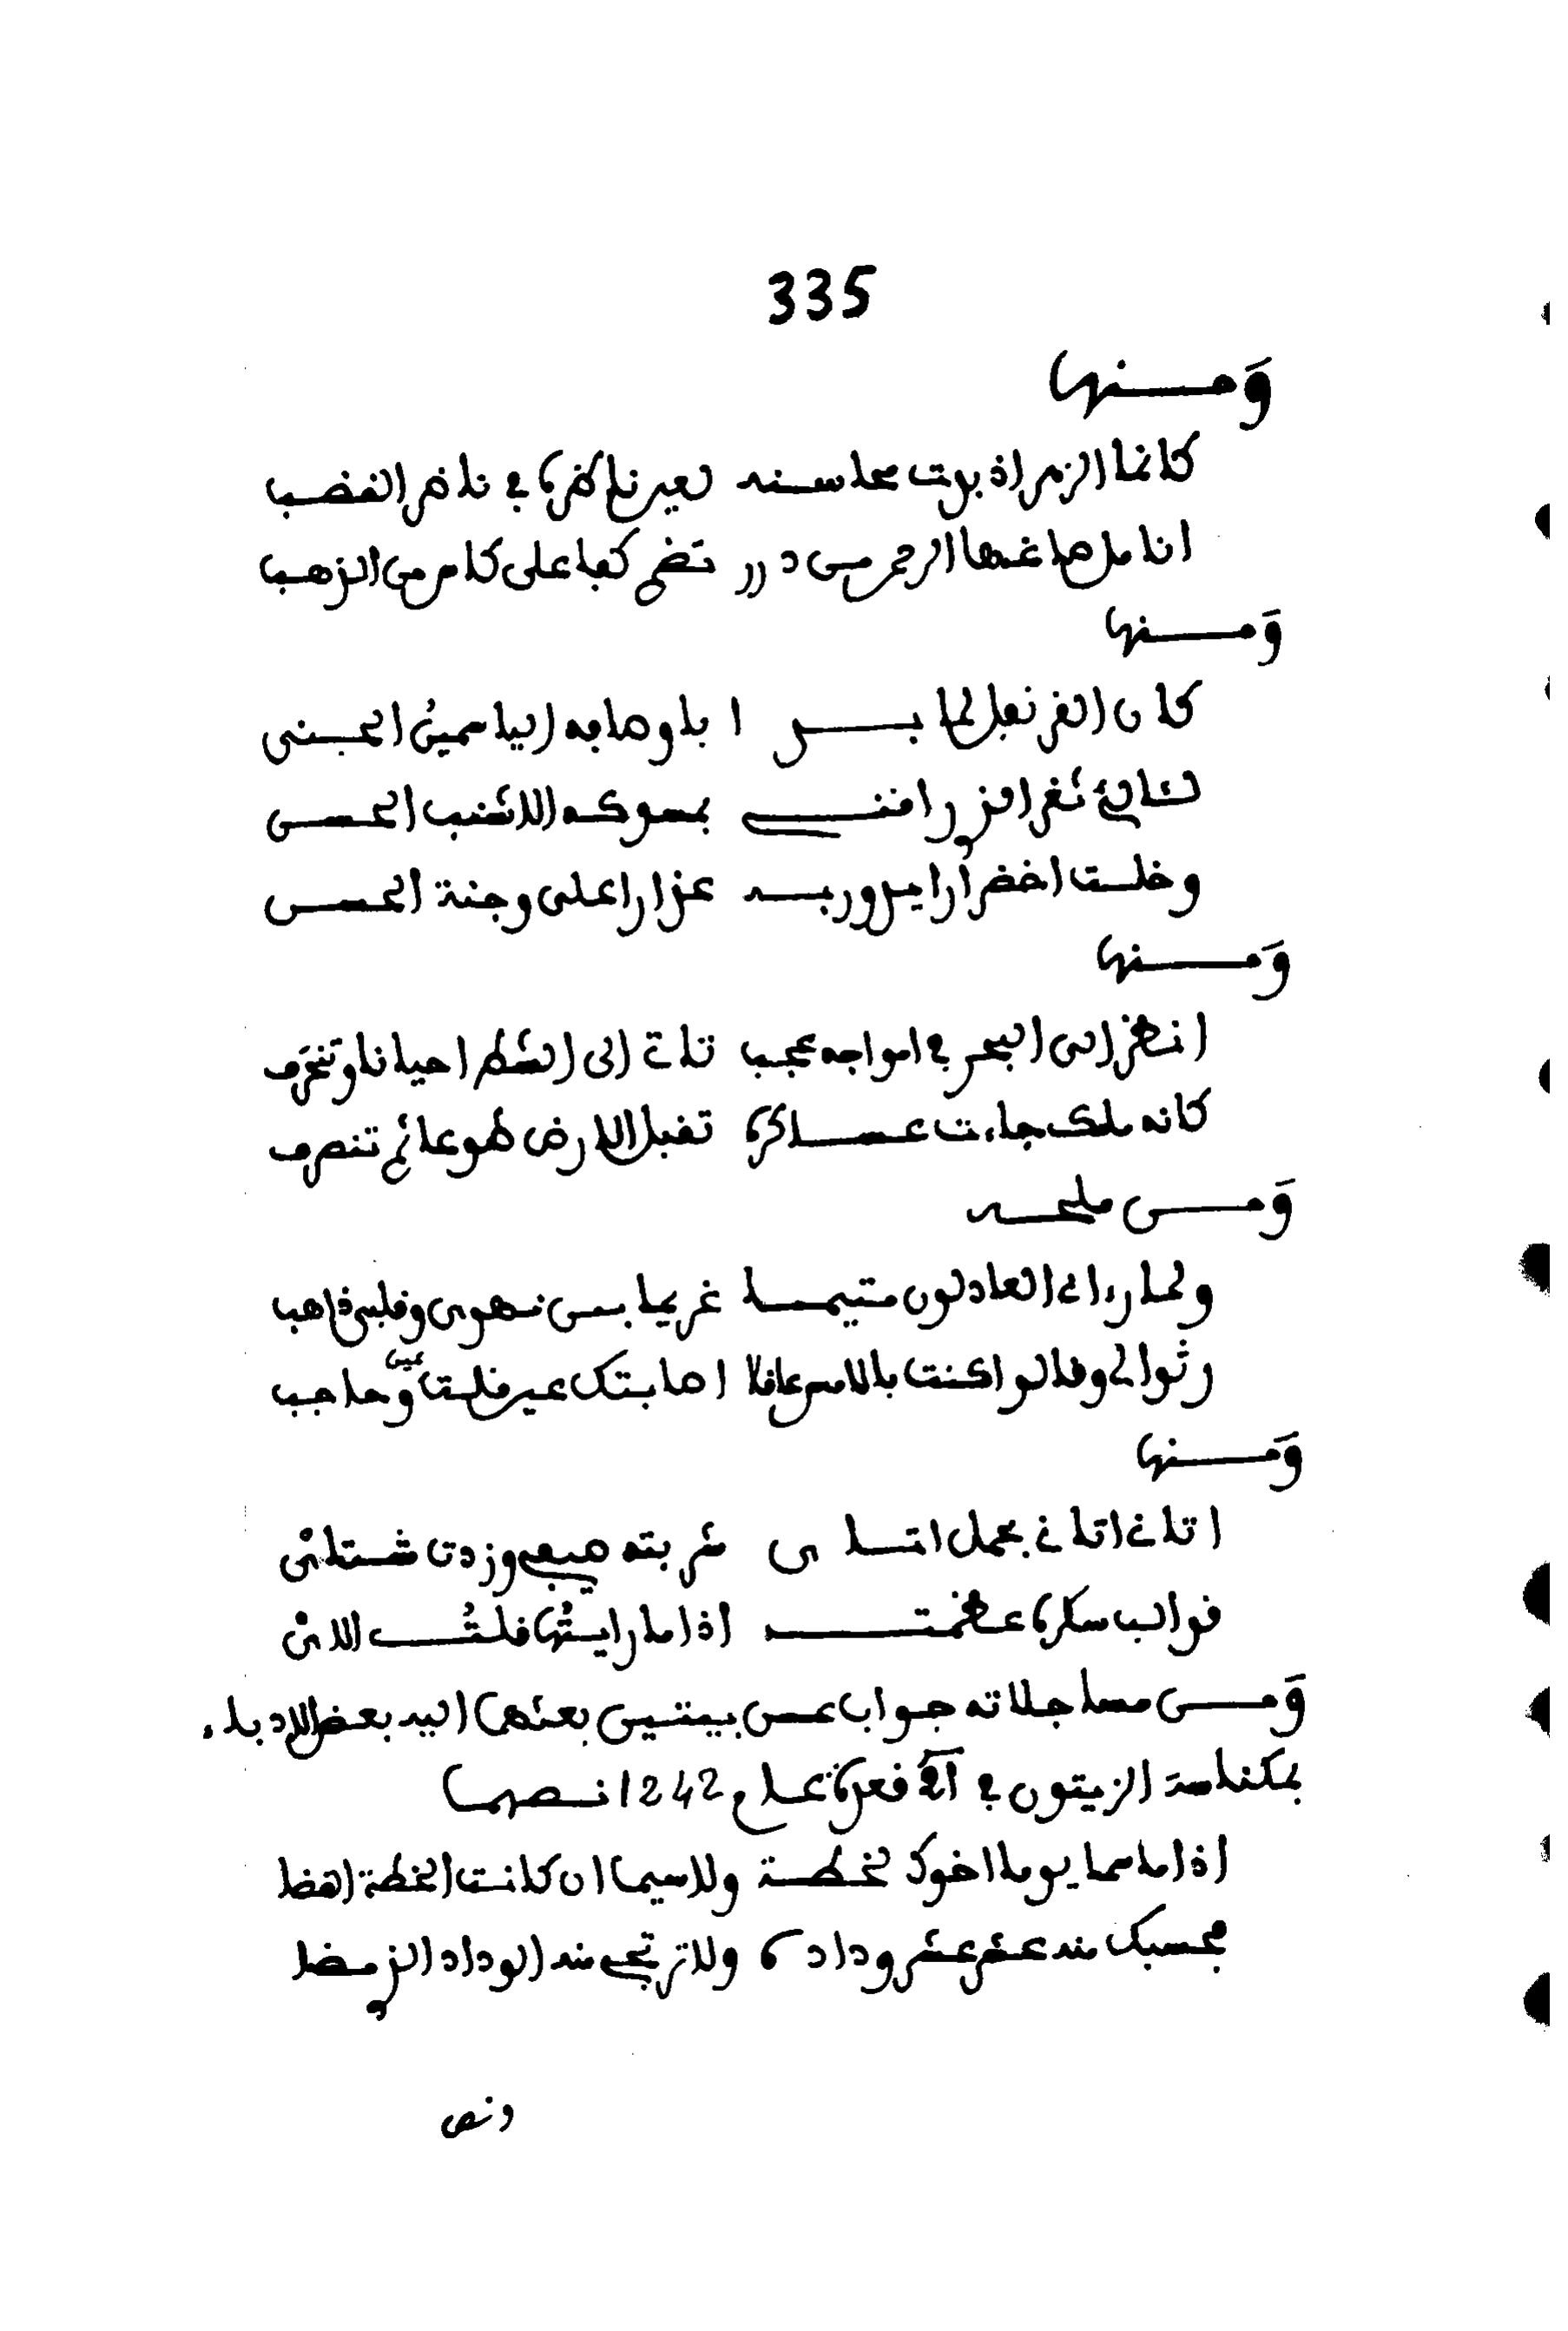 335
ومنها
كانما الزهر اذ بدت محاسنه لعين ناظره في ناضر القضب
انامل صاغها الرحمن من درر تضم كفا على كاس من الذهب
ومنها
كان القرنفل لما بدا باوصافه الياسمين الجني
لئالئ ثغر اقر راقني بمسوكه الاشنب الحسن
وخلت اخضرارا يرو ربه عذارا على وجنة الحسن
ومنها
انظر الى البحر في امواجه عجب تاتي الى الشط احيانا وتنحرف
كانه ملك جاءت عساكره تقبل الارض طوعا ثم تنصرف
ومن ملحه
ولما رءاني العاذلون متيما غريما بمن نهوى وقلبي ذاهب
رثوا لي وقالوا كنت بالامس عاقلا اصابتك عين قلت عين وحاجب
ومنها
اتاني اتاني بحمل اتاى شربته صيفي وزدت شتائي
فوالب سكره عظمت اذا ما رايتها قلت اللائي
ومن مساجلاته جواب عن بيتين بعثهما اليه بعض الادباء
بمكناسة الزيتون في قعدة عام 1242 نصهما
اذا ما سما يوما اخوك لخطة ولاسيما ان كانت الخطة القضا
فحسبك منه عشر عشر وداده ولا ترتجي منه الوداد الذي مضا
ونص